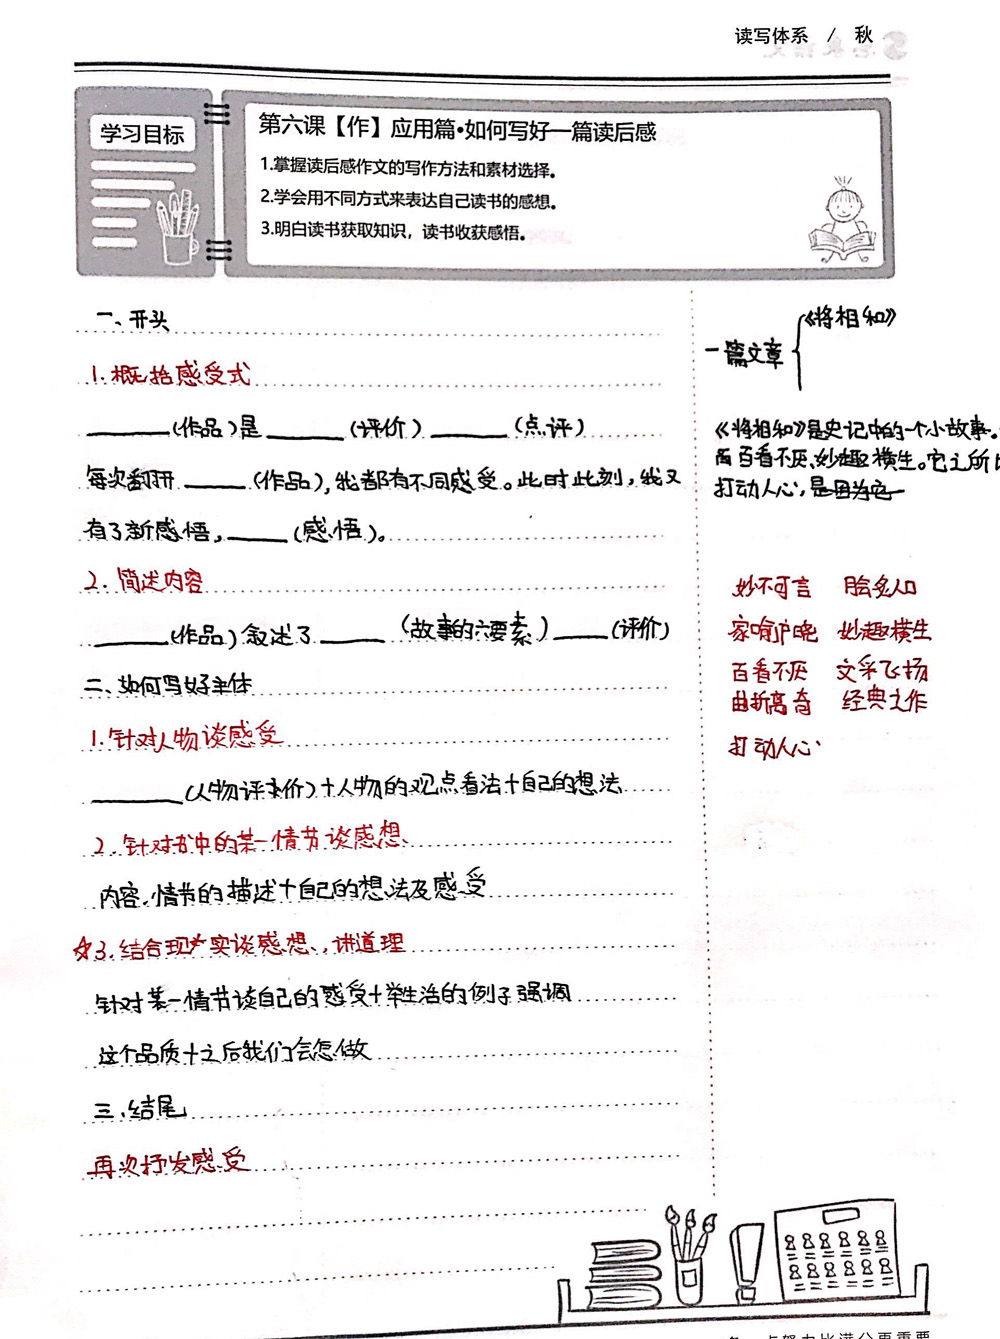 读写体系 / 秋
学习目标
第六课【作】应用篇•如何写好一篇读后感
1.掌握读后感作文的写作方法和素材选择。
2.学会用不同方式来表达自己读书的感想。
3.明白读书获取知识，读书收获感悟。
一、开头
1.概括感受式
______(作品)是______(评价)______(点评)
每次翻开______(作品),我都有不同感受。此时此刻,我又
有了新感悟,______(感悟)。
2.简述内容
______(作品)叙述了______(故事的六要素)______(评价)
二、如何写好主体
1.针对人物谈感受
______(人物评价)+人物的观点看法+自己的想法
2.针对书中的某一情节谈感想
内容、情节的描述+自己的想法及感受
☆3.结合现实谈感想、讲道理
针对某一情节谈自己的感受+举生活的例子强调
这个品质+之后我们会怎做
三、结尾
再次抒发感受
一篇文章{《将相和》
《将相和》是史记中的一个小故事。
百看不厌、妙趣横生。它之所
打动人心,是因为它
妙不可言 脍炙人口
家喻户晓 妙趣横生
百看不厌 文采飞扬
曲折离奇 经典之作
打动人心